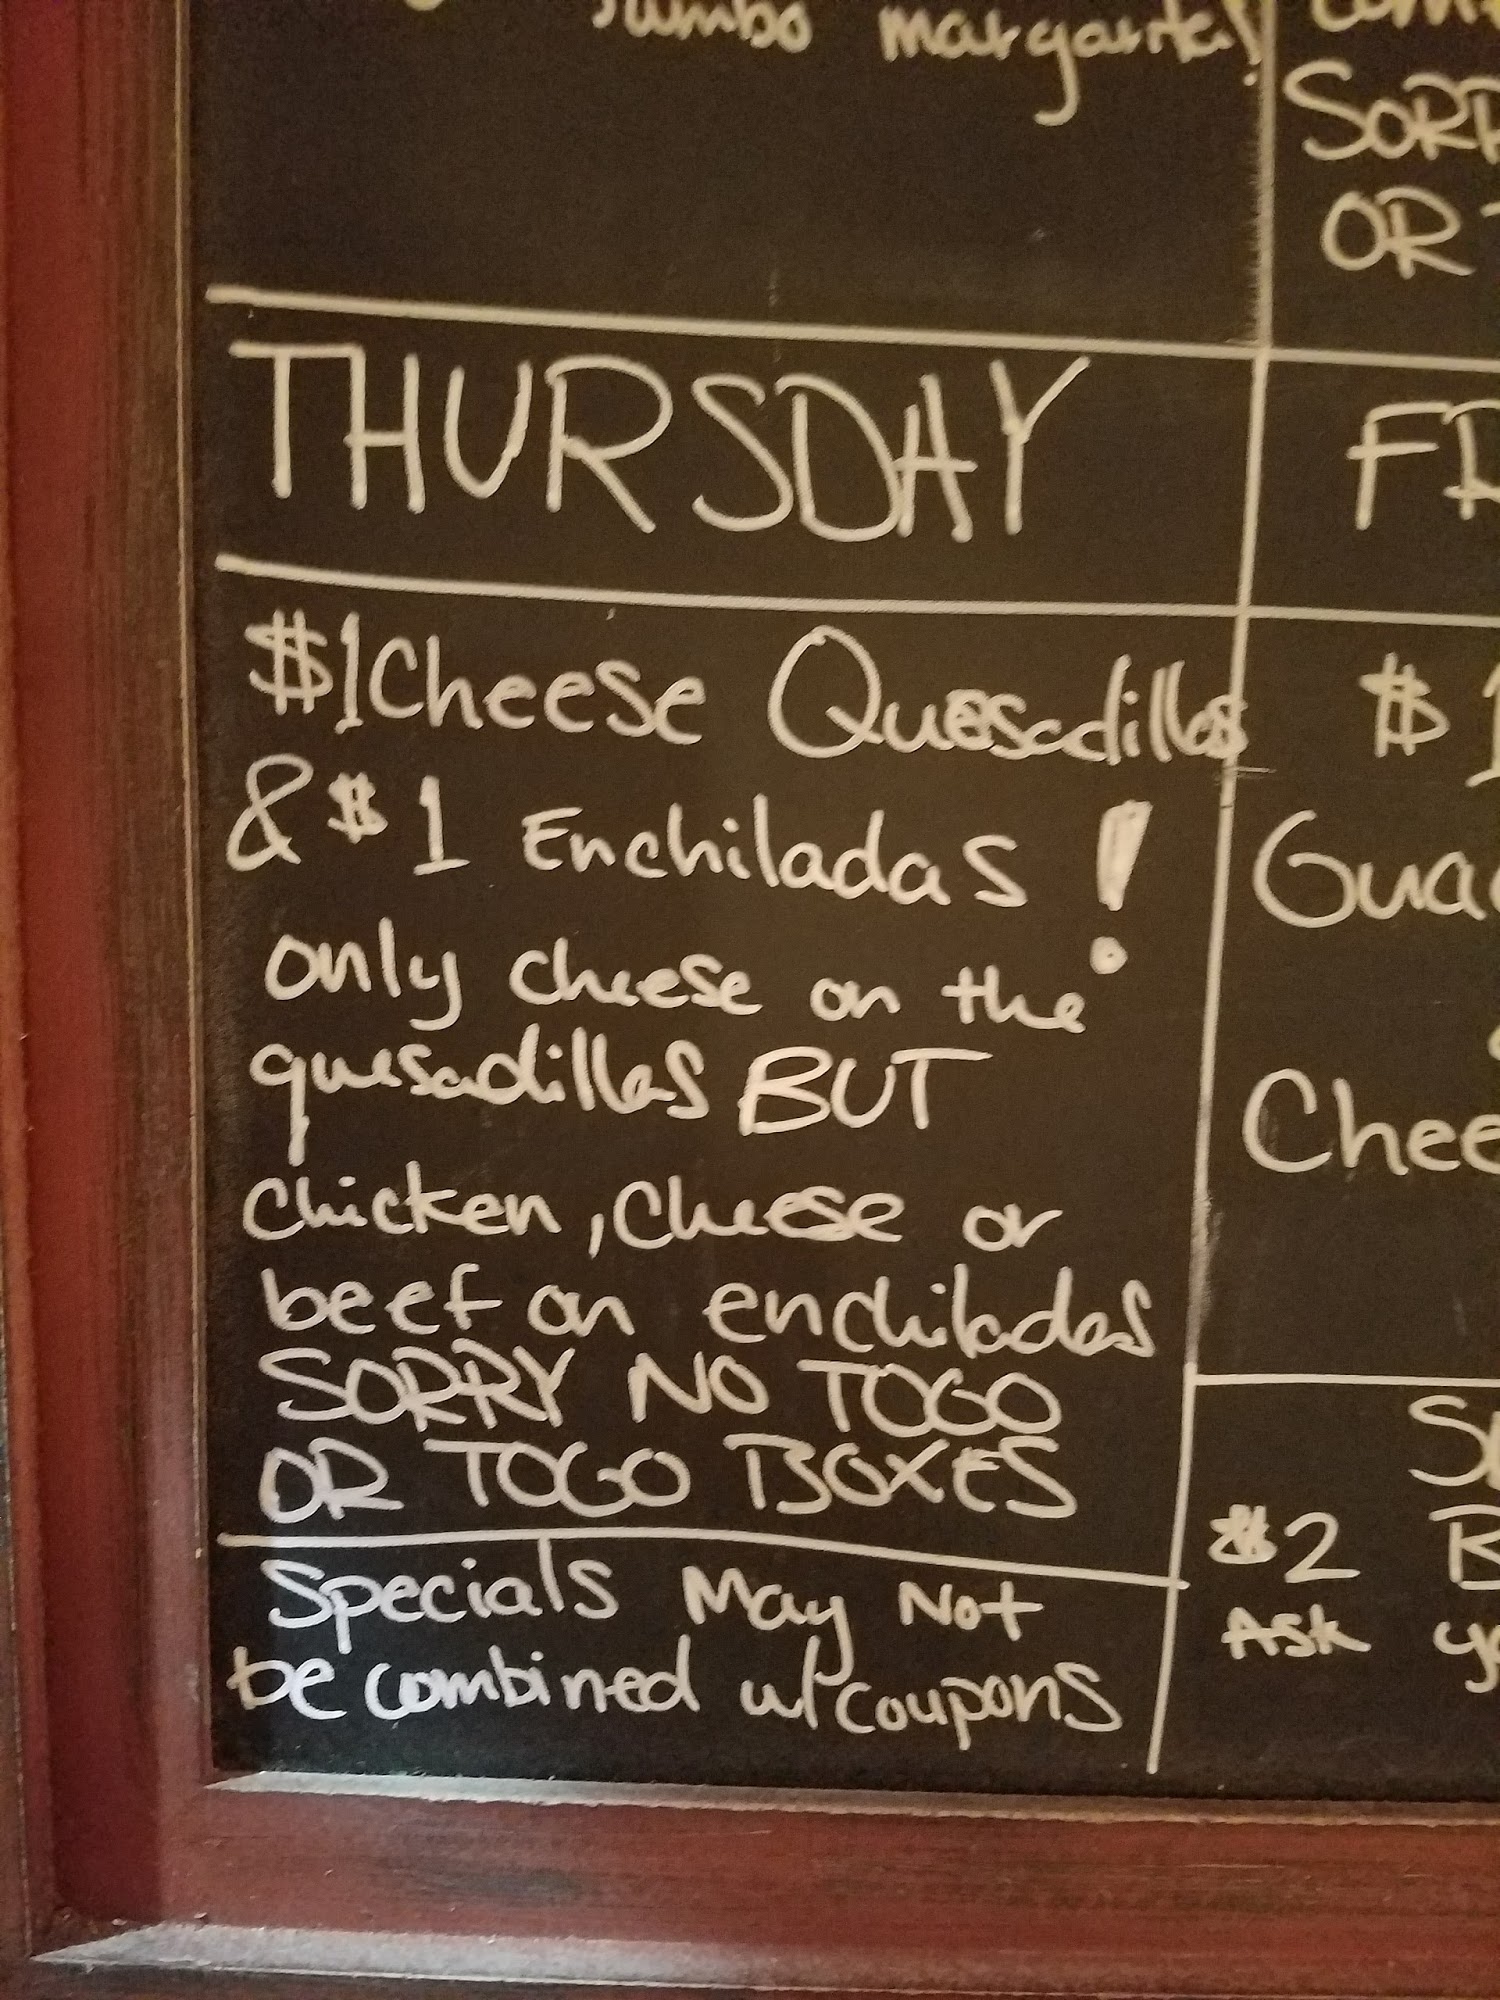 Jumbo margarita!
SORR
OR
THURSDAY
$1 Cheese Quesadillas
& $1 Enchiladas!
only cheese on the
quesadillas BUT
chicken, cheese or
beef on enchiladas
SORRY NO TOGO
OR TOGO BOXES
Specials May Not
be combined w/ coupons
FR
$1
Guac
Chee
$2 B
Ask yo